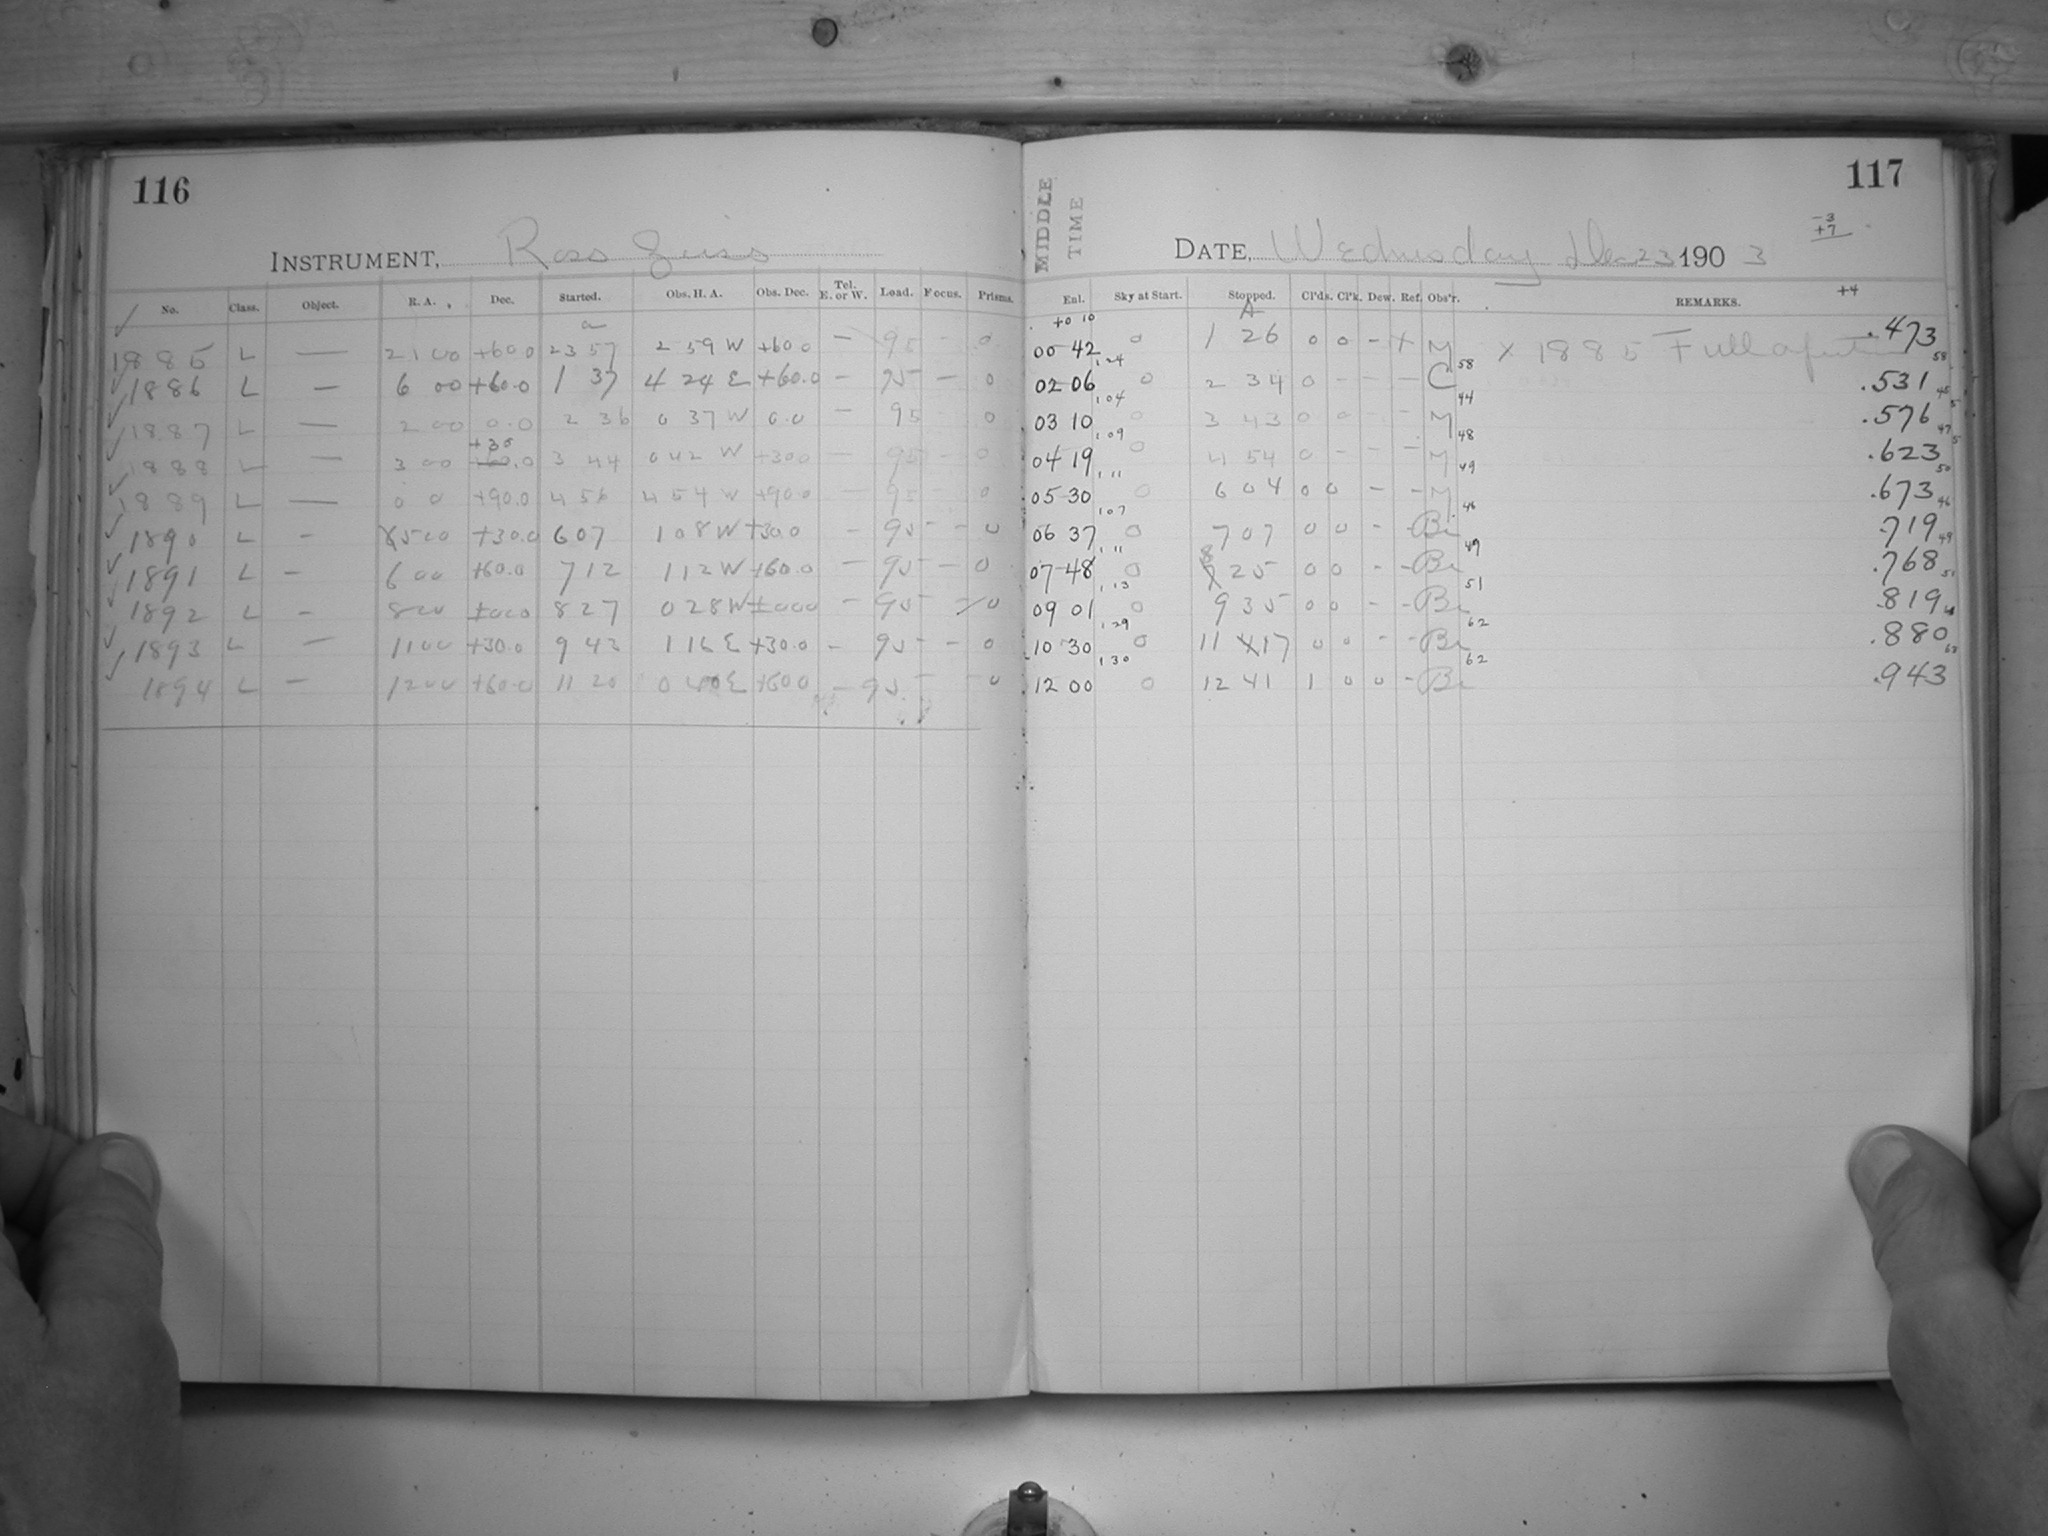 116
INSTRUMENT, Ross Zeiss
No. Class. Object. R. A. Dec. Started. Obs. H. A. Obs. Dec. Tel. E. or W. Load. Focus. Prisms.
1885 L — 21 00 +60.0 23 57 2 59 W +60.0 — 95 — 0
1886 L — 6 00 +60.0 1 37 4 24 E +60.0 — 95 — 0
1887 L — 2 00 0.0 2 36 0 37 W 0.0 — 95 — 0
+30
1888 L — 3 00 60.0 3 44 0 42 W +30.0 — 95 — 0
1889 L — 0 0 +90.0 4 56 4 54 W +90.0 — 95 — 0
1890 L — 5 00 +30.0 6 07 1 08 W +30.0 — 95 — 0
1891 L — 6 00 +60.0 7 12 1 12 W +60.0 — 95 — 0
1892 L — 8 00 ±00.0 8 27 0 28 W ±00.0 — 95 — 0
1893 L — 11 00 +30.0 9 43 1 16 E +30.0 — 95 — 0
1894 L — 12 00 +60.0 11 20 0 40 E +60.0 — 95 — 0
117
MIDDLE TIME
-3
+7
DATE, Wednesday Dec 23 1903
+4
Enl. Sky at Start. Stopped. Cl'ds. Cl'k. Dew. Ref. Obs'r. REMARKS.
+0 10
00 42 0 1 26 0 0 - + M x 1885 Full aperture .473
1.24 58 58
02 06 0 2 34 0 - - - C .531
1.04 44 45
03 10 0 3 43 0 0 - - M .576
1.09 48 47
04 19 0 4 54 0 - - - M .623
1.11 49 50
05 30 0 6 04 0 0 - - M .673
1.07 46 46
06 37 0 7 07 0 0 - - Bi .719
1.11 49 49
07 48 0 8 25 0 0 - - Bi .768
1.13 51 51
09 01 0 9 35 0 0 - - Bi .819
1.29 62
10 30 0 11 17 0 0 - - Bi .880
1.30 62 63
12 00 0 12 41 1 0 0 - Bi .943